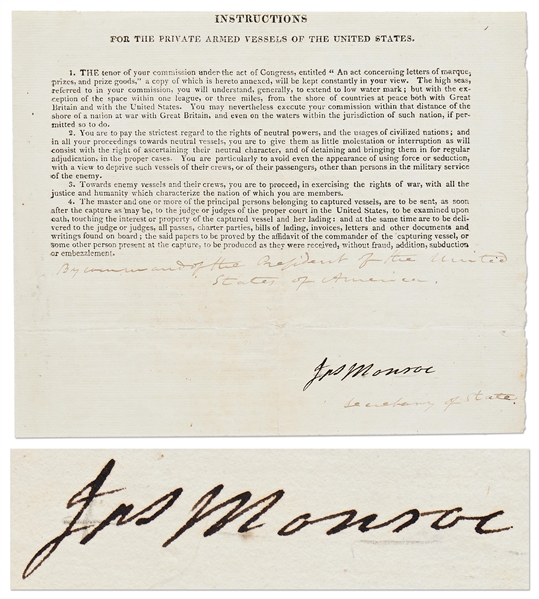 INSTRUCTIONS
FOR THE PRIVATE ARMED VESSELS OF THE UNITED STATES.
1. THE tenor of your commission under the act of Congress, entitled “ An act concerning letters of marque,
prizes, and prize goods,” a copy of which is hereto annexed, will be kept constantly in your view. The high seas,
referred to in your commission, you will understand, generally, to extend to low water mark; but with the ex-
ception of the space within one league, or three miles, from the shore of countries at peace both with Great
Britain and with the United States. You may nevertheless execute your commission within that distance of the
shore of a nation at war with Great Britain, and even on the waters within the jurisdiction of such nation, if per-
mitted so to do.
2. You are to pay the strictest regard to the rights of neutral powers, and the usages of civilized nations; and
in all your proceedings towards neutral vessels, you are to give them as little molestation or interruption as will
consist with the right of ascertaining their neutral character, and of detaining and bringing them in for regular
adjudication, in the proper cases. You are particularly to avoid even the appearance of using force or seduction,
with a view to deprive such vessels of their crews, or of their passengers, other than persons in the military service
of the enemy.
3. Towards enemy vessels and their crews, you are to proceed, in exercising the rights of war, with all the
justice and humanity which characterize the nation of which you are members.
4. The master and one or more of the principal persons belonging to captured vessels, are to be sent, as soon
after the capture as may be, to the judge or judges of the proper court in the United States, to be examined upon
oath, touching the interest or property of the captured vessel and her lading: and at the same time are to be deli-
vered to the judge or judges, all passes, charter parties, bills of lading, invoices, letters and other documents and
writings found on board; the said papers to be proved by the affidavit of the commander of the capturing vessel, or
some other person present at the capture, to be produced as they were received, without fraud, addition, subduction
or embezzlement.
By command of the President of the United
States of America.
Jas Monroe
Secretary of State.
Jas Monroe